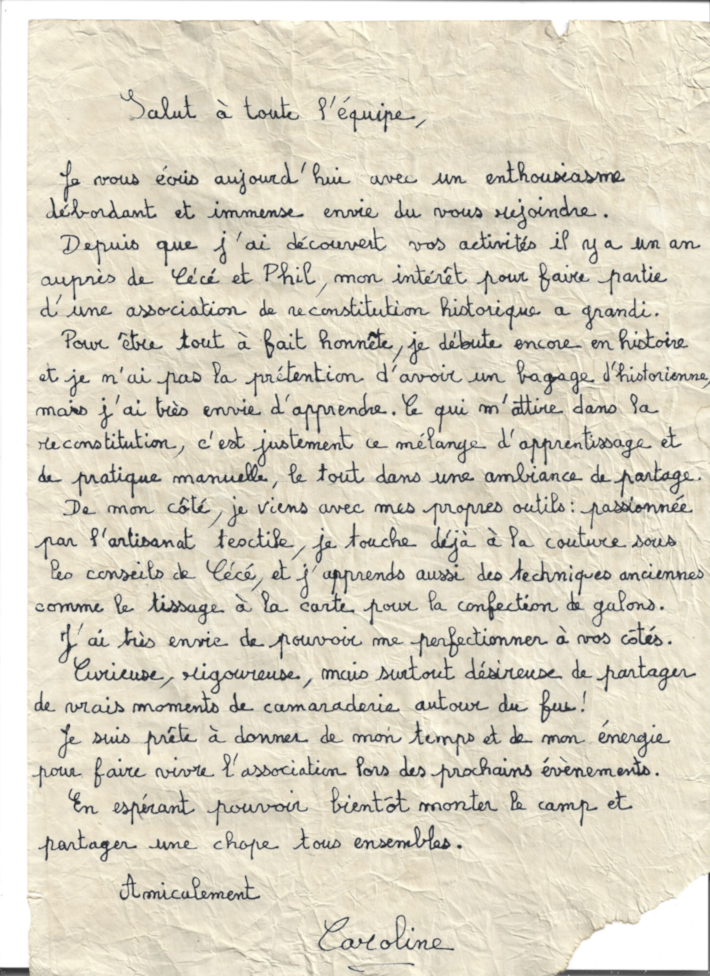 Salut à toute l'équipe,
Je vous écris aujourd'hui avec un enthousiasme
débordant et immense envie du vous rejoindre.
Depuis que j'ai découvert vos activités il y a un an
auprès de Cécé et Phil, mon intérêt pour faire partie
d'une association de reconstitution historique a grandi.
Pour être tout à fait honnête, je débute encore en histoire
et je n'ai pas la prétention d'avoir un bagage d'historienne,
mais j'ai très envie d'apprendre. Ce qui m'attire dans la
reconstitution, c'est justement ce mélange d'apprentissage et
de pratique manuelle, le tout dans une ambiance de partage.
De mon côté, je viens avec mes propres outils : passionnée
par l'artisanat textile, je touche déjà à la couture sous
les conseils de Cécé, et j'apprends aussi des techniques anciennes
comme le tissage à la carte pour la confection de galons.
J'ai très envie de pouvoir me perfectionner à vos côtés.
Curieuse, rigoureuse, mais surtout désireuse de partager
de vrais moments de camaraderie autour du feu !
Je suis prête à donner de mon temps et de mon énergie
pour faire vivre l'association lors des prochains évènements.
En espérant pouvoir bientôt monter le camp et
partager une chope tous ensembles.
Amicalement
Caroline